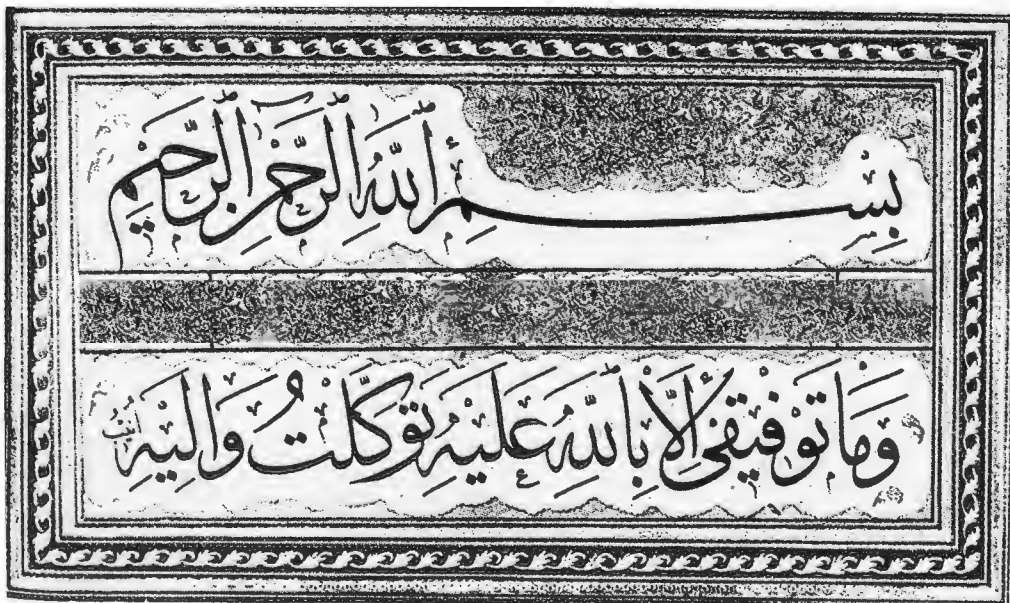 بِسْمِ اللَّهِ الرَّحْمٰنِ الرَّحِيمِ
وَمَا تَوْفِيقِى إِلَّا بِاللَّهِ عَلَيْهِ تَوَكَّلْتُ وَإِلَيْهِ أُنِيبُ